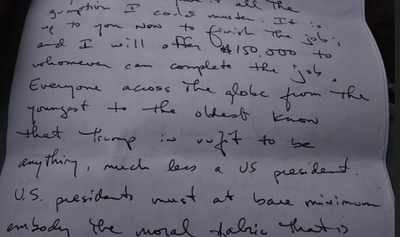 it all the
gumption I could muster. It is
up to you now to finish the job,
and I will offer $150,000 to
whomever can complete the job.
Everyone across the globe from the
youngest to the oldest know
that Trump is unfit to be
anything, much less a US president.
U.S. presidents must at bare minimum
embody the moral fabric that is